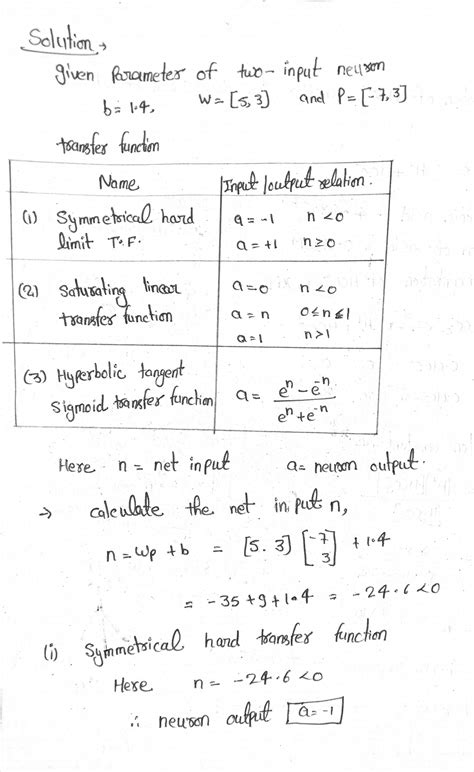 Solution →
given Parameter of two-input neuron
b = 1.4, W = [5, 3] and P = [-7, 3]
transfer function
Name Input/output relation.
(1) Symmetrical hard limit T.F. a = -1 n < 0
a = +1 n ≥ 0.
(2) Saturating linear transfer function a = 0 n < 0
a = n 0 ≤ n ≤ 1
a = 1 n > 1
(3) Hyperbolic tangent
Sigmoid transfer function a = e^n - e^-n / e^n + e^-n
Here n = net input a = neuron output.
→ calculate the net input n,
n = Wp + b = [5. 3] [-7 3] + 1.4
= -35 + 9 + 1.4 = -24.6 < 0
(i) Symmetrical hard transfer function
Here n = -24.6 < 0
∴ neuron output a = -1